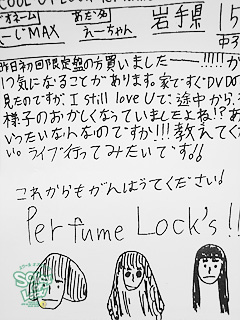 COOL UP LOCK
ーじMAX
あだ名
えーちゃん
岩手県
15
中3
昨日初回限定盤の方買いました――!!!!!が
1つ気になることがあります。家ですぐDVDの
見たのですが、I still love Uで、途中から、
様子のおかしくなっていましたよね!?あ
いったいなんなのですか!!!教えてく
い。ライブ行ってみたいです。
これからもがんばってください!
Perfume Lock's!!